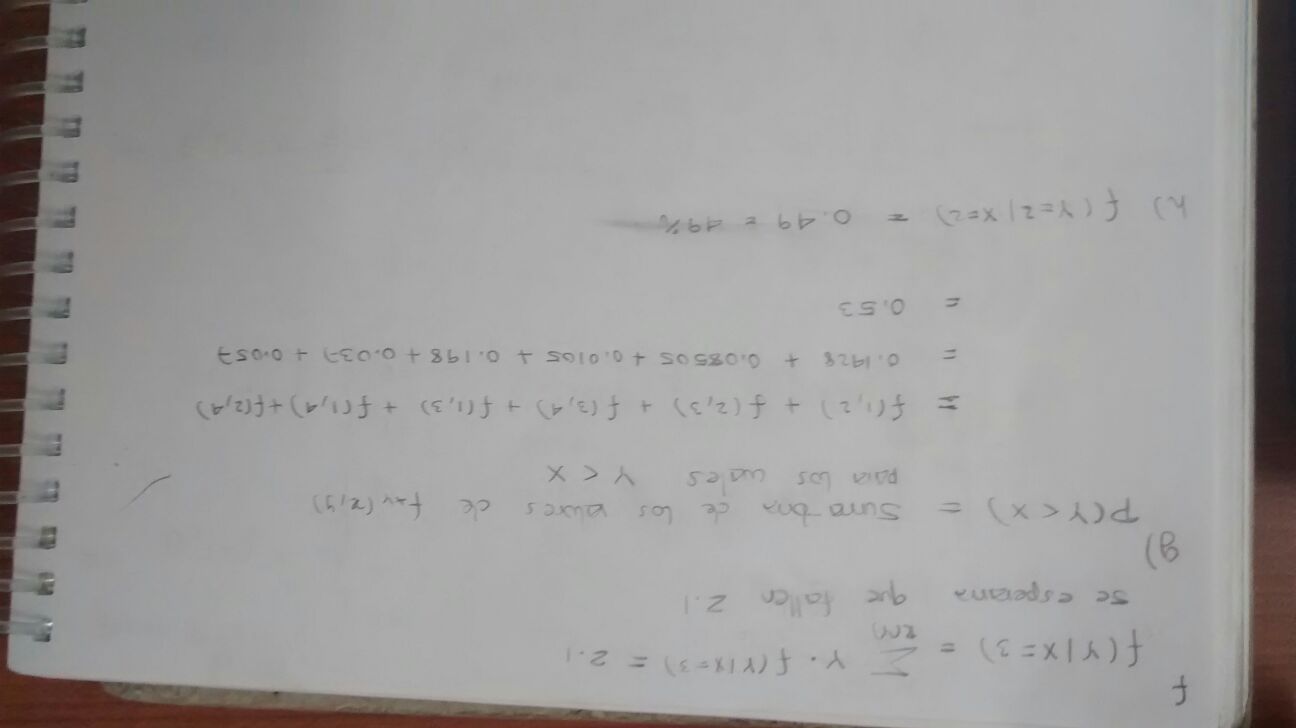 f
f(Y|X=3) = ∑ Y · f(Y|X=3) = 2.1
se esperaria que fallen 2.1
g)
P(Y<X) = Sumatoria de los valores de fxy(x,y)
para los cuales Y<X
= f(1,2) + f(2,3) + f(3,4) + f(1,3) + f(1,4) + f(2,4)
= 0.1928 + 0.08505 + 0.0105 + 0.198 + 0.037 + 0.057
= 0.53
h) f(Y=2|X=2) = 0.49 = 49%